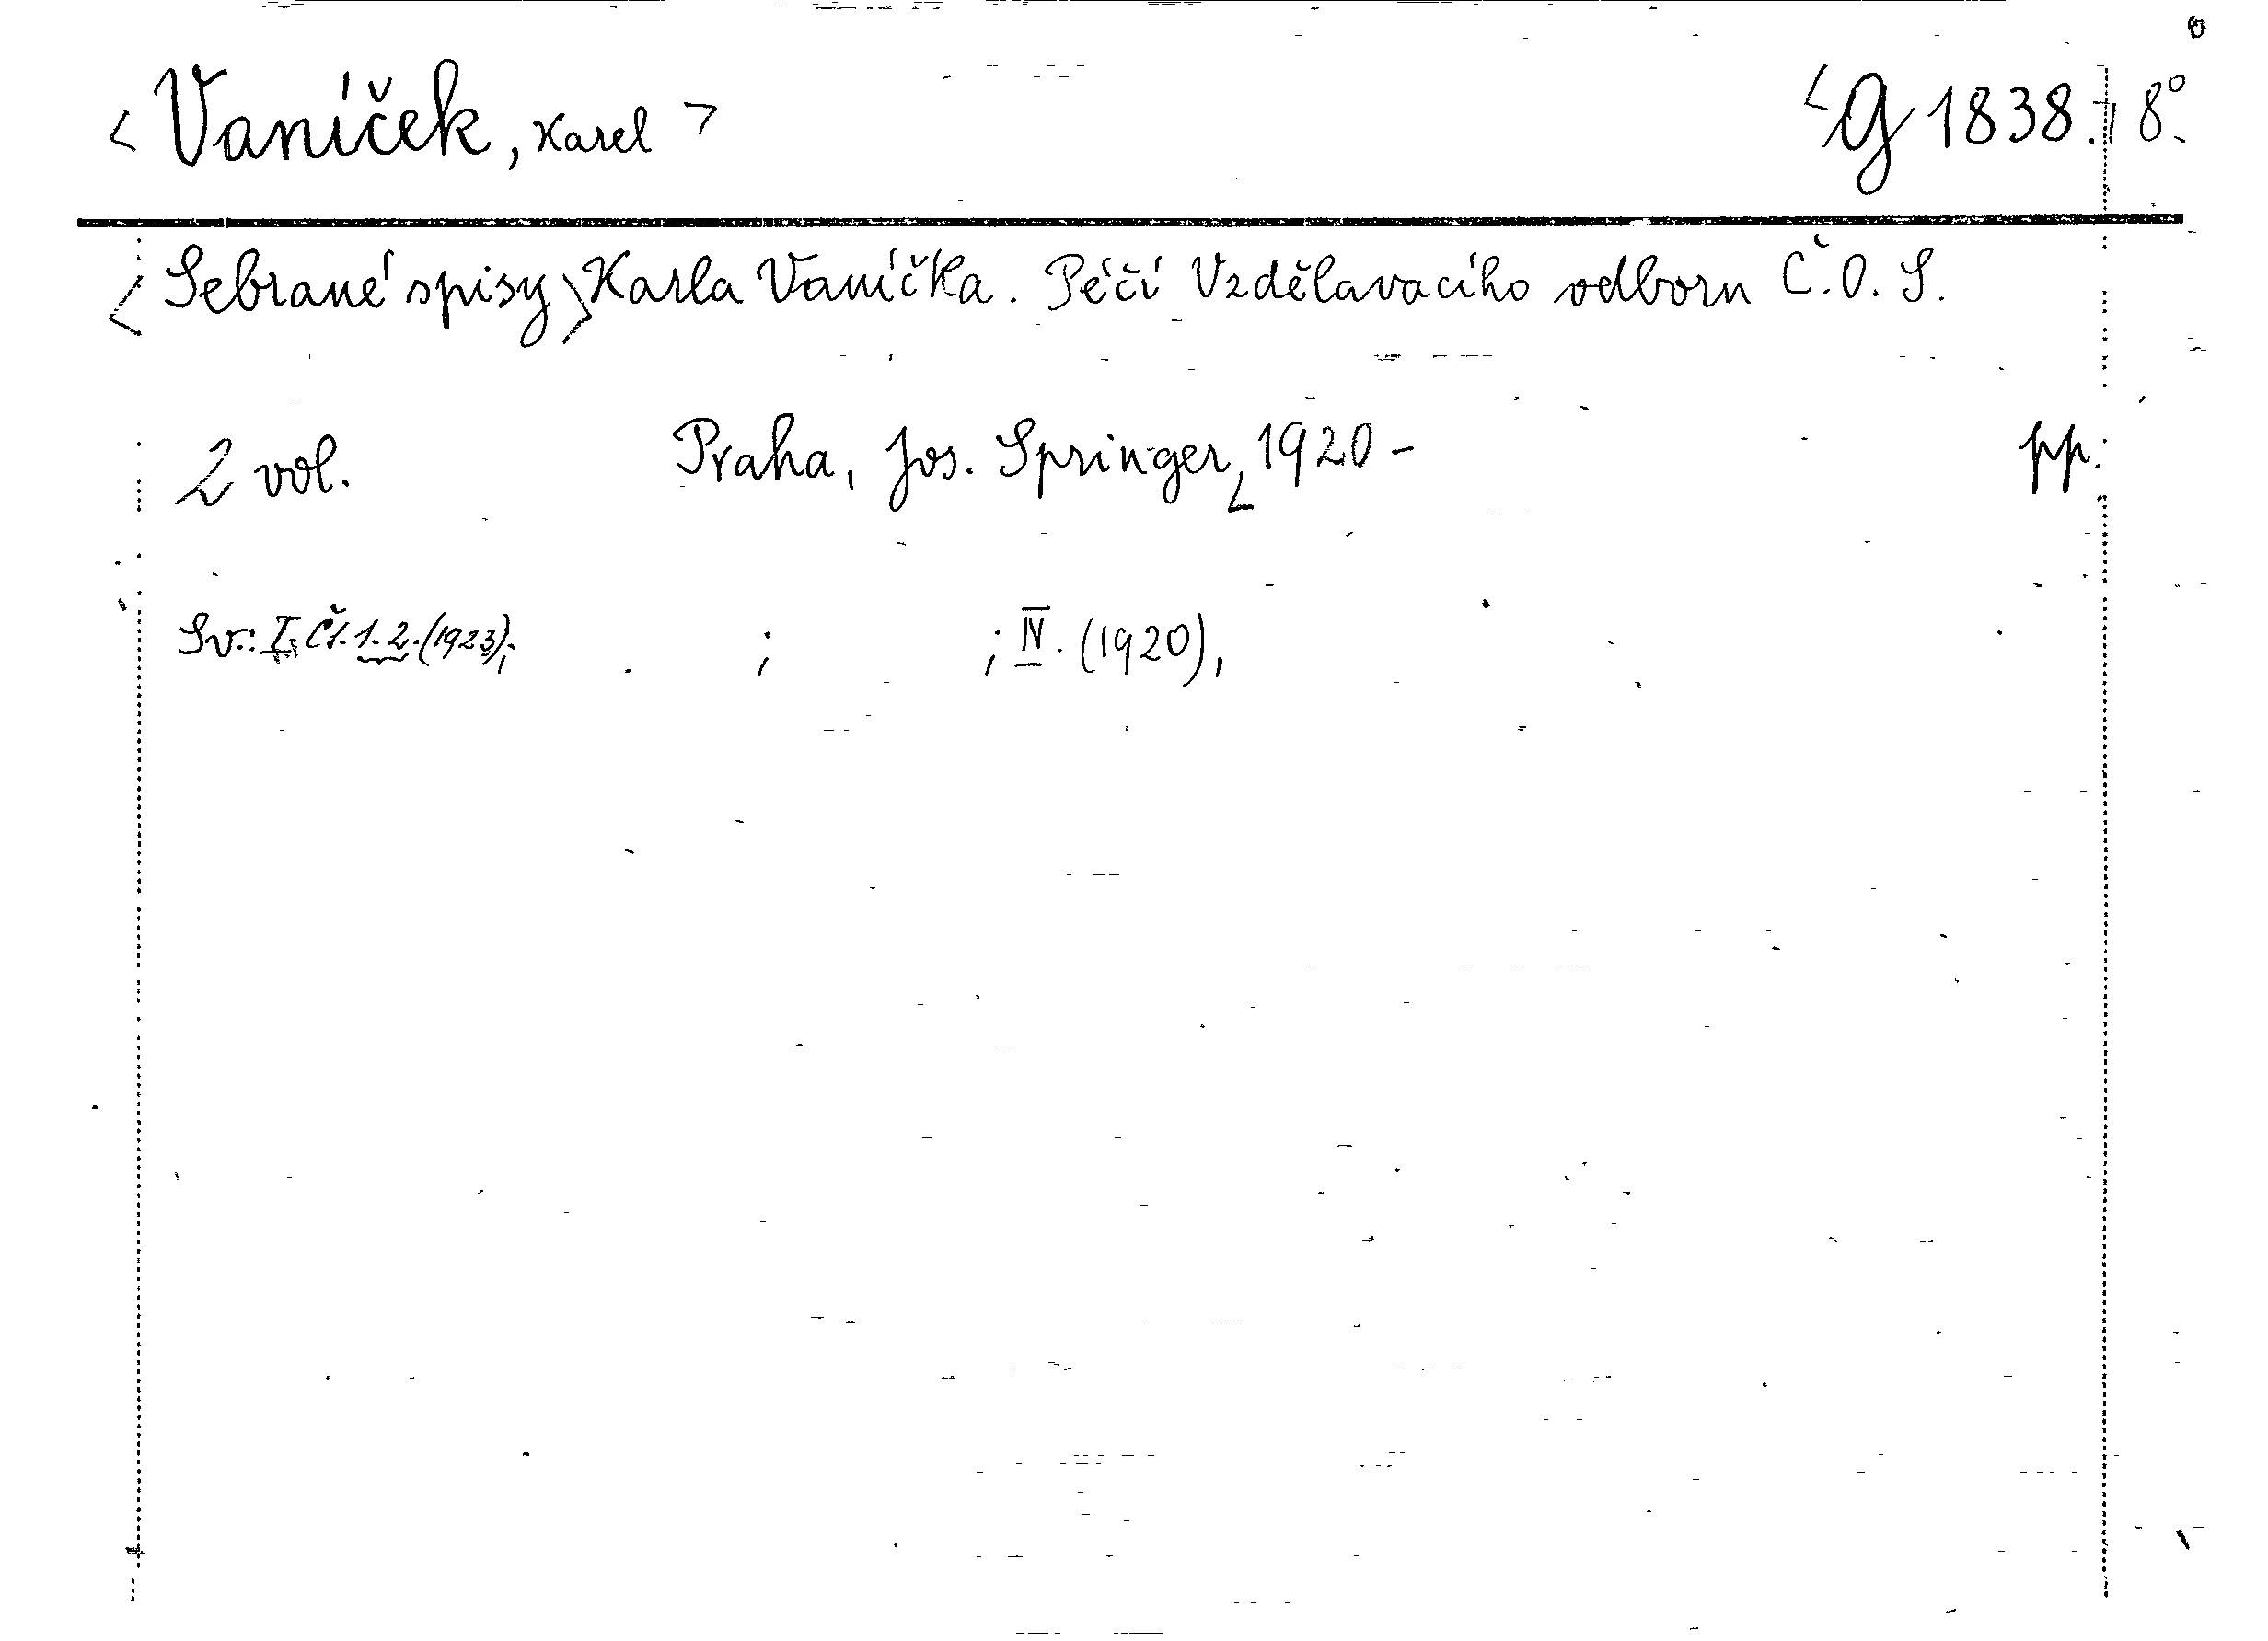 <Vaníček, Karel> <G 1838. | 8°.
<Sebrané spisy> Karla Vaníčka. Péčí Vzdělavacího odboru Č.O.S.
2 vol. Praha, Jos. Springer, 1920 - pp.
Sv.: I. Čí. 1. 2. (1923); ; ; IV. (1920),